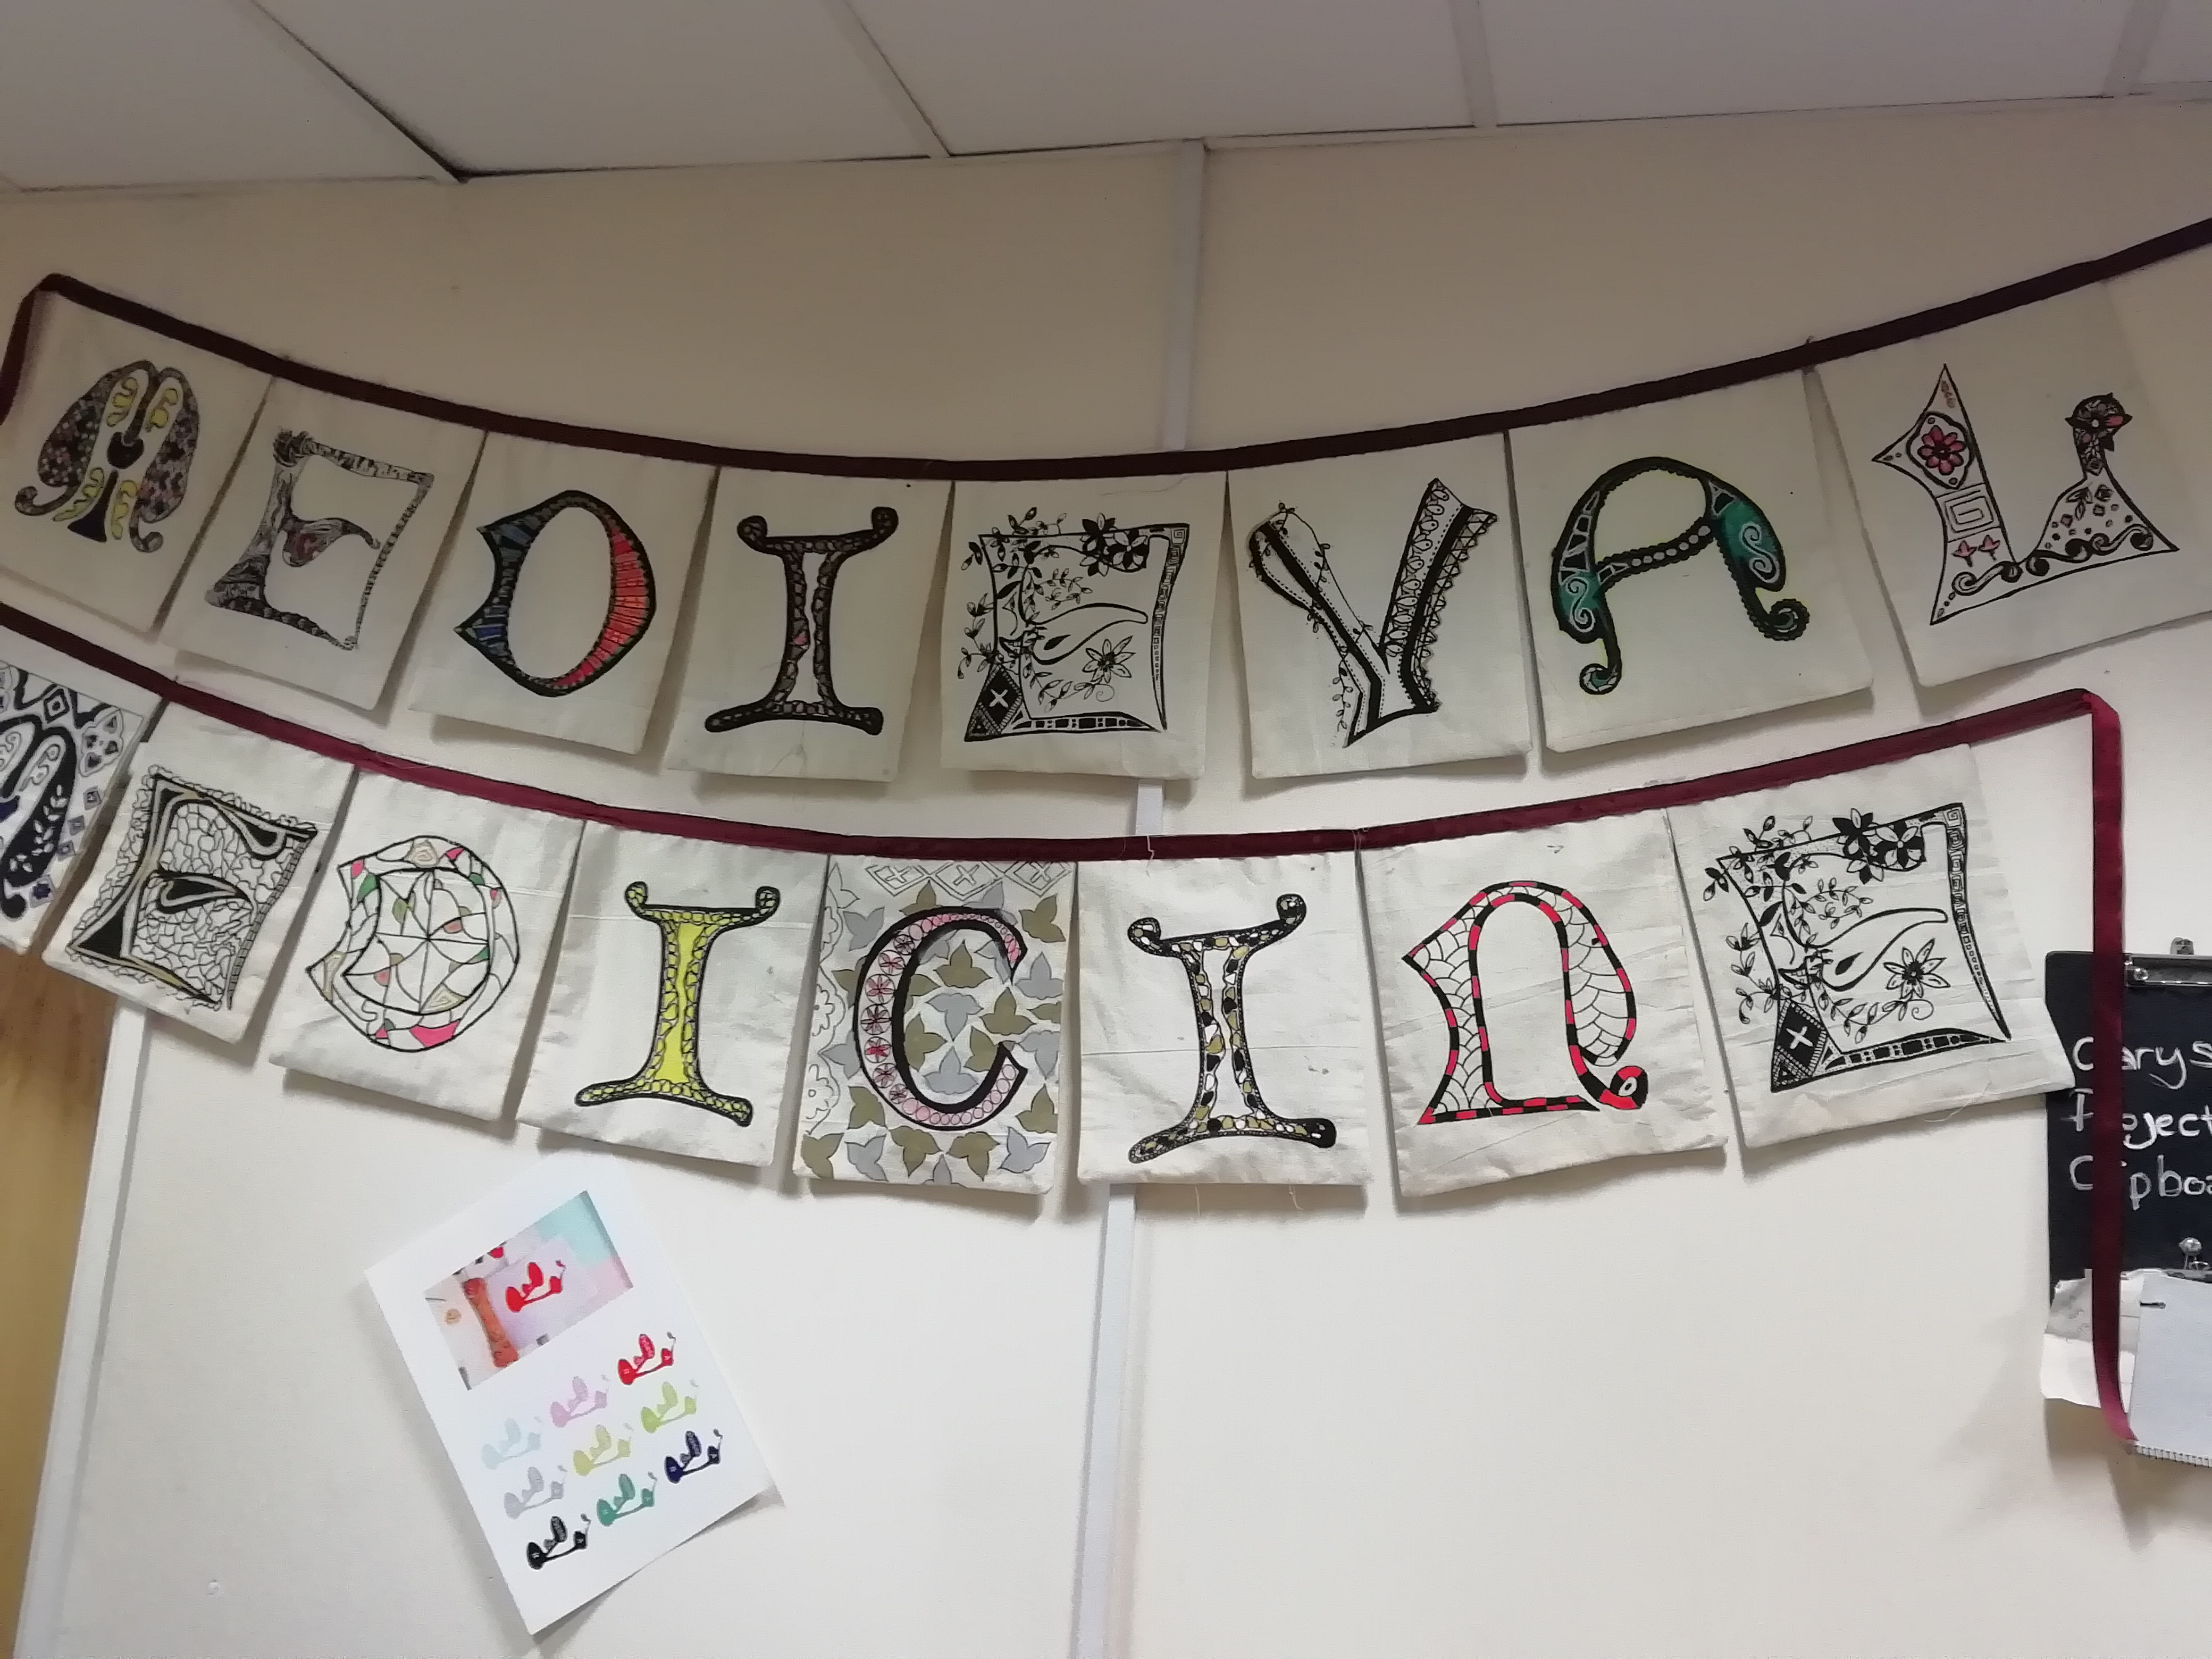 MEDIEVAL
MEDICINE
Carys
Project
Clipboa